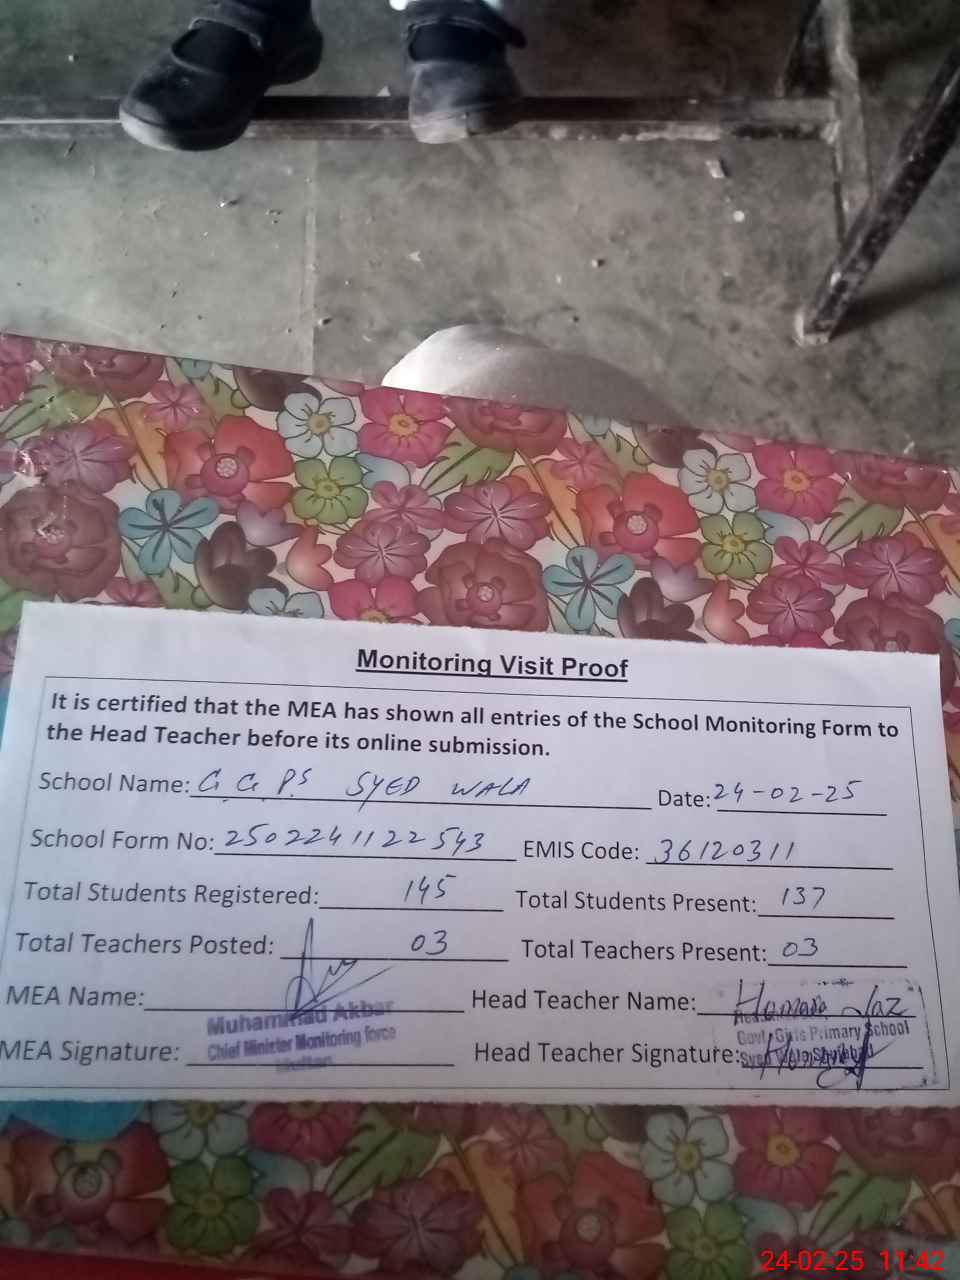 Monitoring Visit Proof
It is certified that the MEA has shown all entries of the School Monitoring Form to
the Head Teacher before its online submission.
School Name: G G P.S SYED WALA Date: 24-02-25
School Form No: 2502241122543 EMIS Code: 36120311
Total Students Registered: 145 Total Students Present: 137
Total Teachers Posted: 03 Total Teachers Present: 03
MEA Name: Head Teacher Name:
Muhammad Akbar
Chief Minister Monitoring force
Multan
Govt. Girls Primary School
MEA Signature: Head Teacher Signature:
24-02-25 11:42